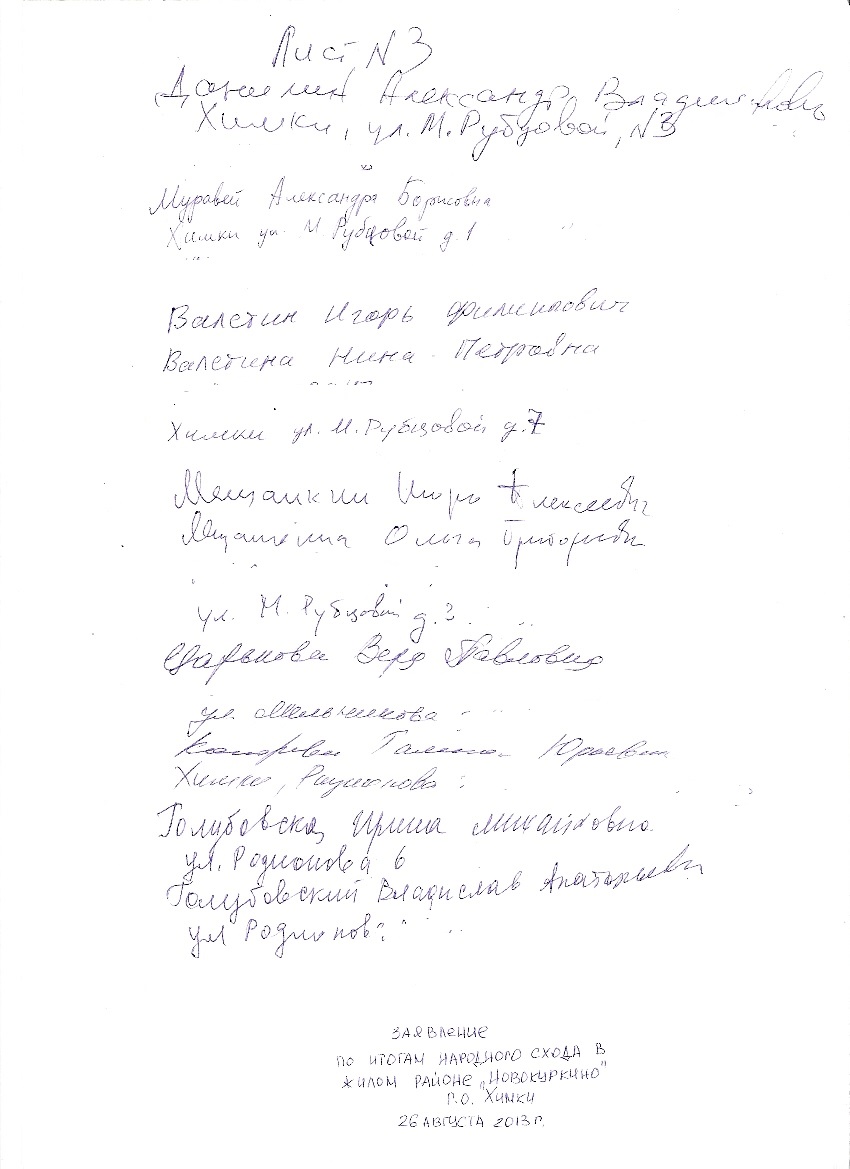 Лист N 3
Данилин Александр Владимирович
Химки, ул. М. Рубцовой, N3
Муравей Александра Борисовна
Химки ул. М. Рубцовой д. 1
Валстин Игорь Филиппович
Валстина Нина Петровна
Химки ул. М. Рубцовой д. 7
Мещанкин Игорь Алексеевич
Ольга Григорьевна
ул. М. Рубцовой д. 3
Царькова Вера Павловна
ул. Мельникова
Галина Юрьевна
Химки, Родионова
Голубовская Ирина Михайловна
ул. Родионова 6
Голубовский Владислав Анатольевич
ул Родионова
ЗАЯВЛЕНИЕ
ПО ИТОГАМ НАРОДНОГО СХОДА В
ЖИЛОМ РАЙОНЕ „НОВОКУРКИНО"
Г.О. ХИМКИ
26 АВГУСТА 2013 Г.